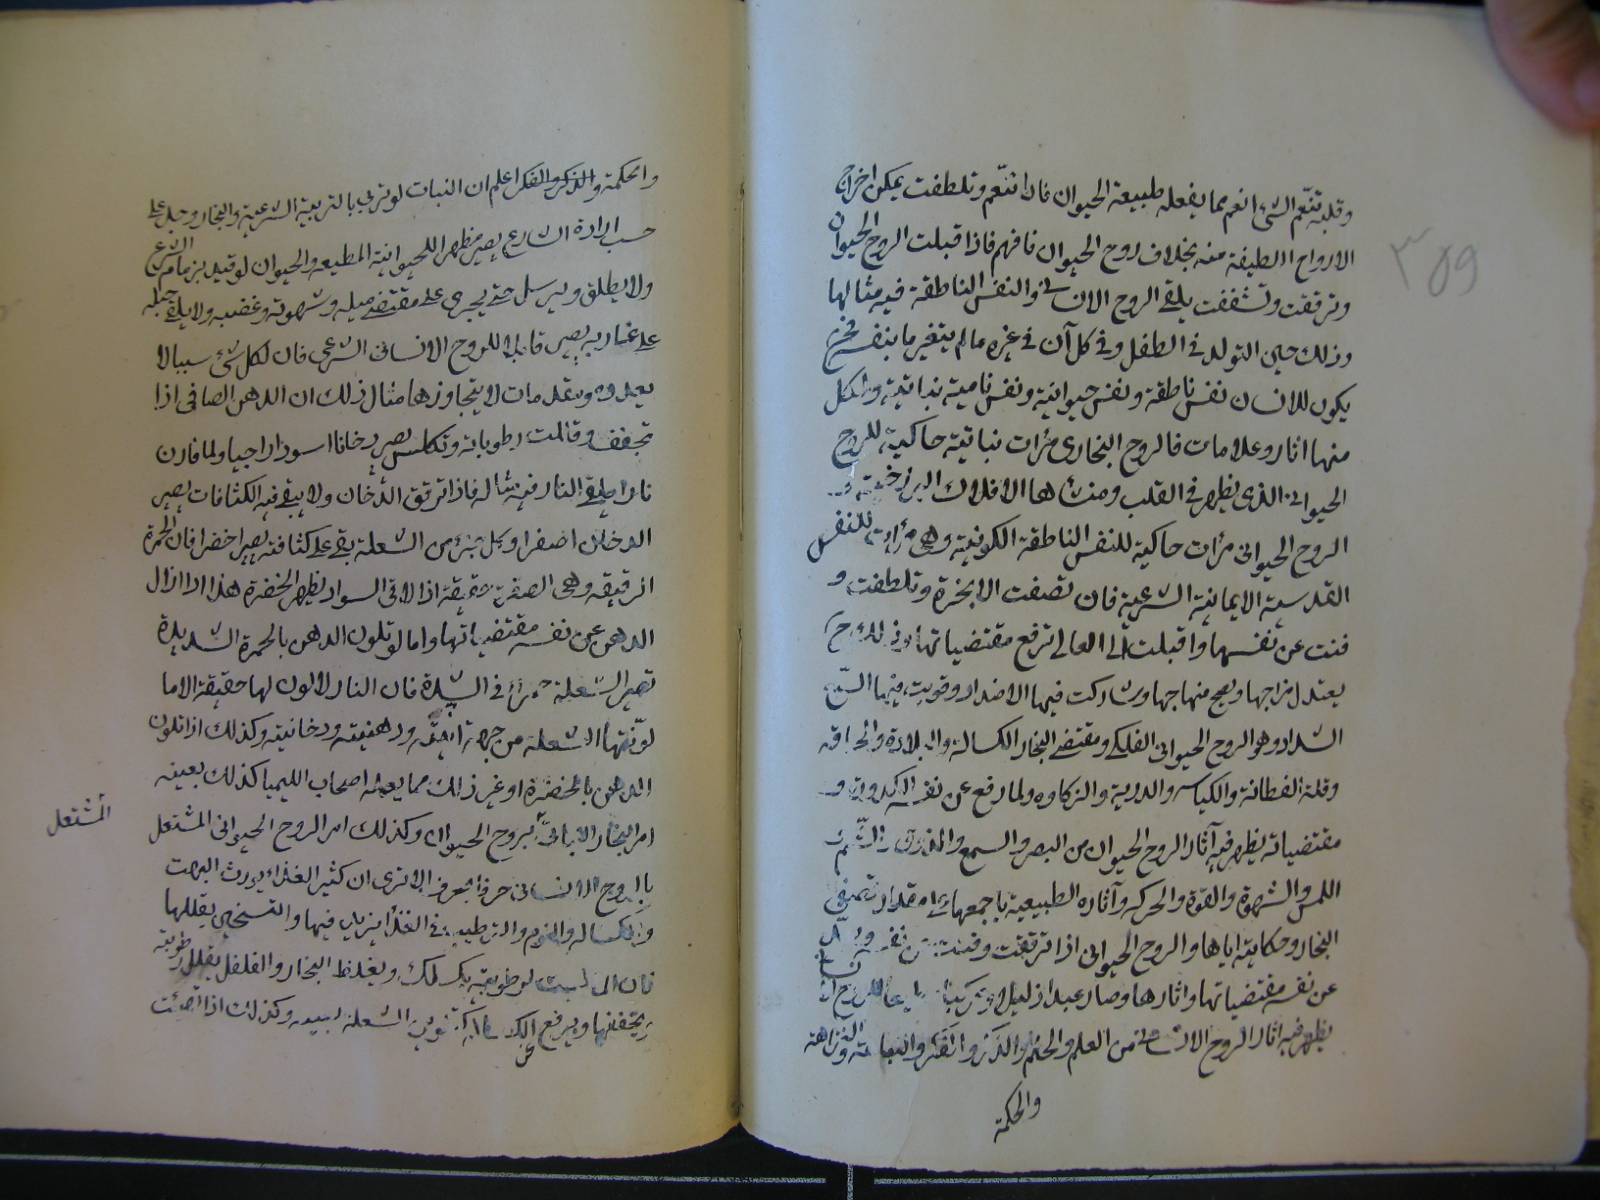 ٣٥٩
وقلبه تنعّم الشئ انعم مما يفعله طبيعة الحيوان فاذا تنعّم وتلطفت يمكن اخراج
الارواح اللطيفة منه بخلاف روح الحيوان فافهم فاذا قبلت الروح الحيوان
وترققت وتشففت يلقى الروح الانسانى والنفس الناطقة فيه مثالها
وذلك حين التولد فى الطفل وفى كل آن فى غيره مالم يتغير ما بنفسه فح
يكون للانسان نفس ناطقة ونفس حيوانية ونفس نامية نباتية ولكل
منها اثار وعلامات فالروح البخارى مرآت نباتية حاكية للروح
الحيوانى الذى يظهر فى القلب ومنشاها الافلاك البرزخية و
الروح الحيوانى مرآت حاكية للنفس الناطقة الكونية وهى مرآت للنفس
القدسية الايمانية الشرعية فان تصفت الابخرة وتلطفت و
فنت عن نفسها واقبلت الى العالى ترفع مقتضياتها وفى الروح
يعتدل مزاجها ويصح منهاجها وشاركت فيها الاضداد وقويت فيها السبع
الشداد وهو الروح الحيوانى الفلكى ومقتضى البخار الكسالة والبلادة والحماقة
وقلة الفطانة والكياسه والدرية والزكاوه ولما رفع عن نفسه الكدورة و
مقتضياته يظهر فيه آثار الروح الحيوان من البصر والسمع والذوق والشم و
اللمس والشهوة والقوة والحركه وآثاره الطبيعية باجمعها على مقدار تصفى
البخار وحكايته اياها والروح الحيوانى اذا ترققت وفنت عن نفسه
عن نفسه مقتضياتها واثارها وصار عبدا ذليلا للروح الانسانى
يظهر فيه اثار الروح الانسانى من العلم والحلم والذكر والفكر والنباهة والنزاهة
والحكمة
والحكمة والذكر والفكر اعلم ان النبات لو تربى بالتربية الشرعية والبخار وجبل على
حسب ارادة الشارع يصير مظهرا للحيوانية المطيعه والحيوان لو قيد بزمام الشرع
ولا يطلق ويرسل حتى يجرى على مقتضى ميله وشهوته وغضبه ولا يلقى حبله
على غاربه يصير قابلا للروح الانسانى الشرعى فان لكل شئ سببا لا
يعدوه ومقدمات لا يتجاوزها مثال ذلك ان الدهن الصافى اذا
تجفف وقللت رطوباته وتكلس يصير دخانا اسودا داجيا ولما قارن
نارا يلقى النار فيه مثاله فاذا ترقق الدخان ولا يبقى فيه الكثافات يصير
الدخان اصفرا وكل جزء من الشعلة بقى على كثافته يصير اخضرا فان الحمرة
الرقيقه وهى الصفرة حقيقة اذا لاقى السواد يظهر الخضرة هذا اذا ازال
الدهن عن نفسه مقتضياتها واما لو تلون الدهن بالحمرة الشديدة
تصير الشعلة حمراء فى الشدة فان النار لا لون لها حقيقة الا ما
لونتها الشعلة من جهة ودهنيته ودخانيته وكذلك اذا تلون
الدهن بالخضرة او غير ذلك مما يعمله اصحاب الليميا كذلك بعينه
امر البخار النباتى بالروح الحيوان وكذلك امر الروح الحيوانى المشتعل
المشتعل
بالروح الانسانى حرفا بحرف الا ترى ان كثير الغذاء يورث البهت
والكساله والنوم والترطيب فى الغذا يزيد فيها والتسخين يقللها
فان الرطوبة يكسلك ويغلظ البخار والفلفل يقلل رطوبته
ويجففها ويرفع الكسالة كذلك تنوير الشعلة لبيته وكذلك اذا